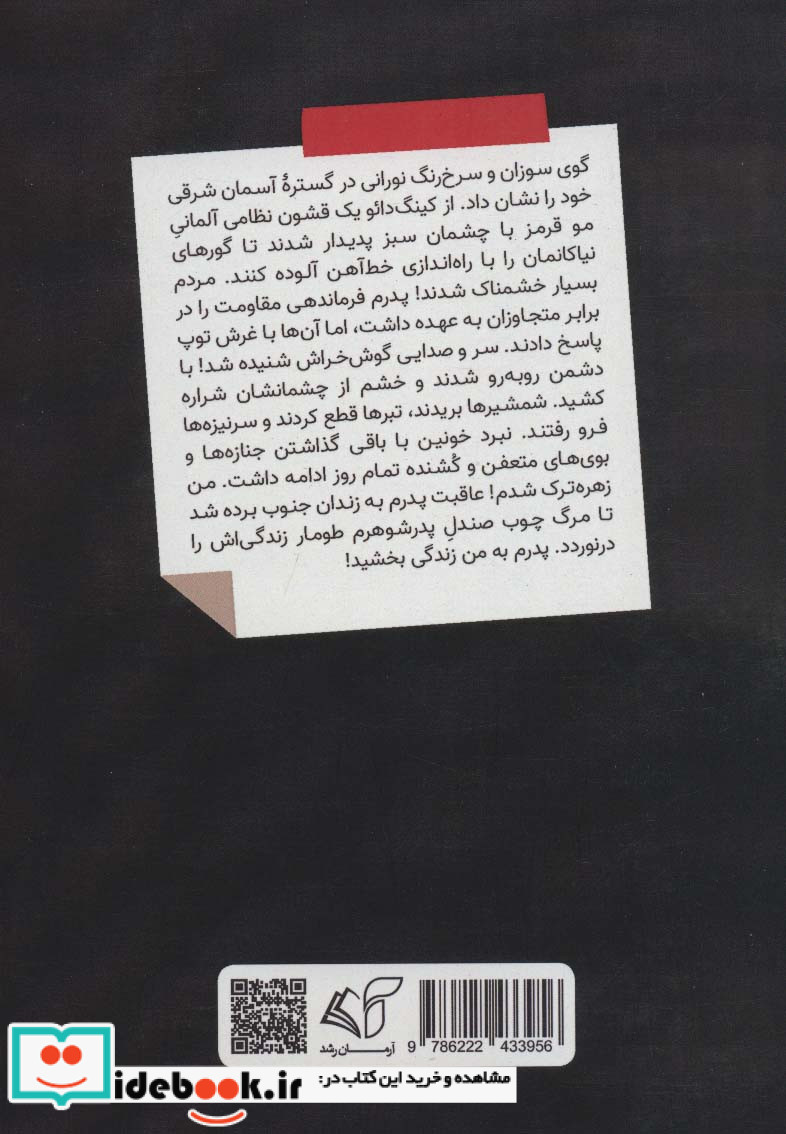 گوی سوزان و سرخ‌رنگ نورانی در گسترهٔ آسمان شرقی
خود را نشان داد. از کینگ‌دائو یک قشون نظامی آلمانیِ
مو قرمز با چشمان سبز پدیدار شدند تا گورهای
نیاکانمان را با راه‌اندازی خط‌آهن آلوده کنند. مردم
بسیار خشمناک شدند! پدرم فرماندهی مقاومت را در
برابر متجاوزان به عهده داشت، اما آن‌ها با غرش توپ
پاسخ دادند. سر و صدایی گوش‌خراش شنیده شد! با
دشمن روبه‌رو شدند و خشم از چشمانشان شراره
کشید. شمشیرها بریدند، تبرها قطع کردند و سرنیزه‌ها
فرو رفتند. نبرد خونین با باقی گذاشتن جنازه‌ها و
بوی‌های متعفن و کُشنده تمام روز ادامه داشت. من
زهره‌ترک شدم! عاقبت پدرم به زندان جنوب برده شد
تا مرگ چوب صندلِ پدرشوهرم طومار زندگی‌اش را
درنوردد. پدرم به من زندگی بخشید!
آرمان رشد
9 786222 433956
مشاهده و خرید این کتاب در:
idebook.ir